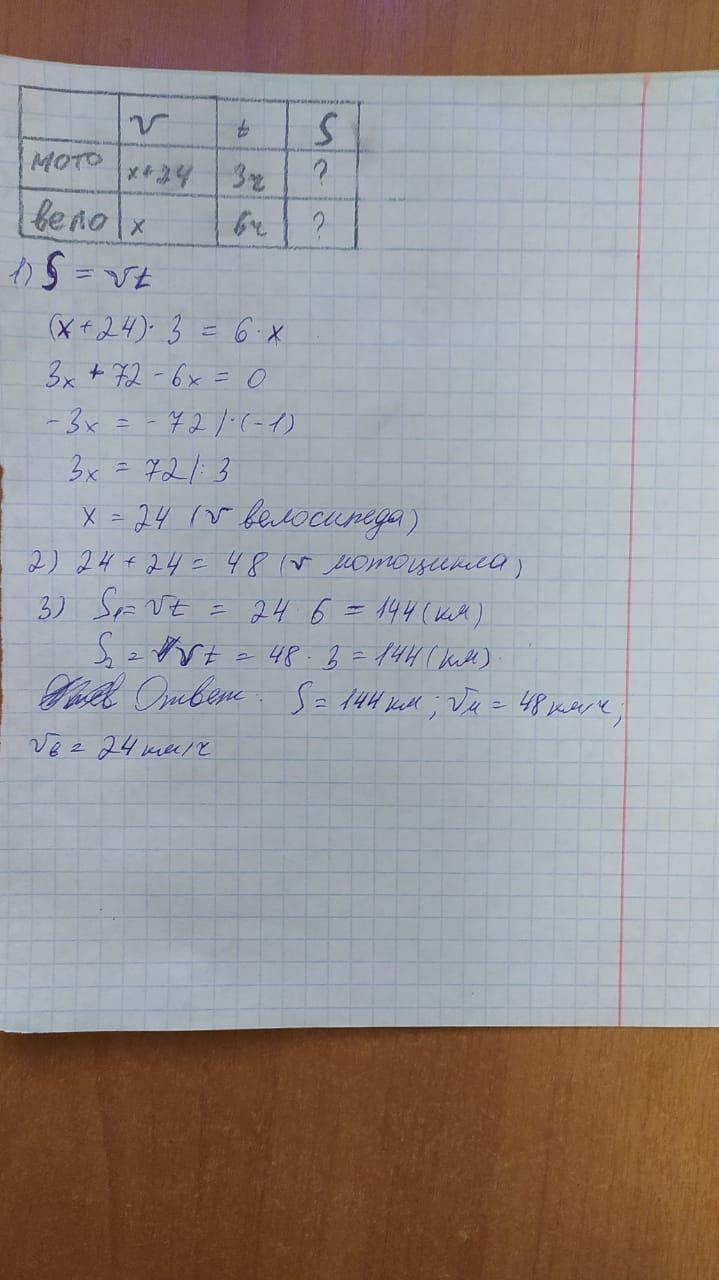 v t S
мото x+24 3ч ?
вело x 6ч ?
1) S = vt
(x+24)·3 = 6·x
3x+72-6x=0
-3x = -72 |·(-1)
3x = 72 |:3
x = 24 (v велосипеда)
2) 24+24=48 (v мотоцикла)
3) S₁=vt = 24·6=144(км)
S₂=vt=48·3=144(км).
Ответ: S=144км; vм=48км/ч;
vв=24км/ч